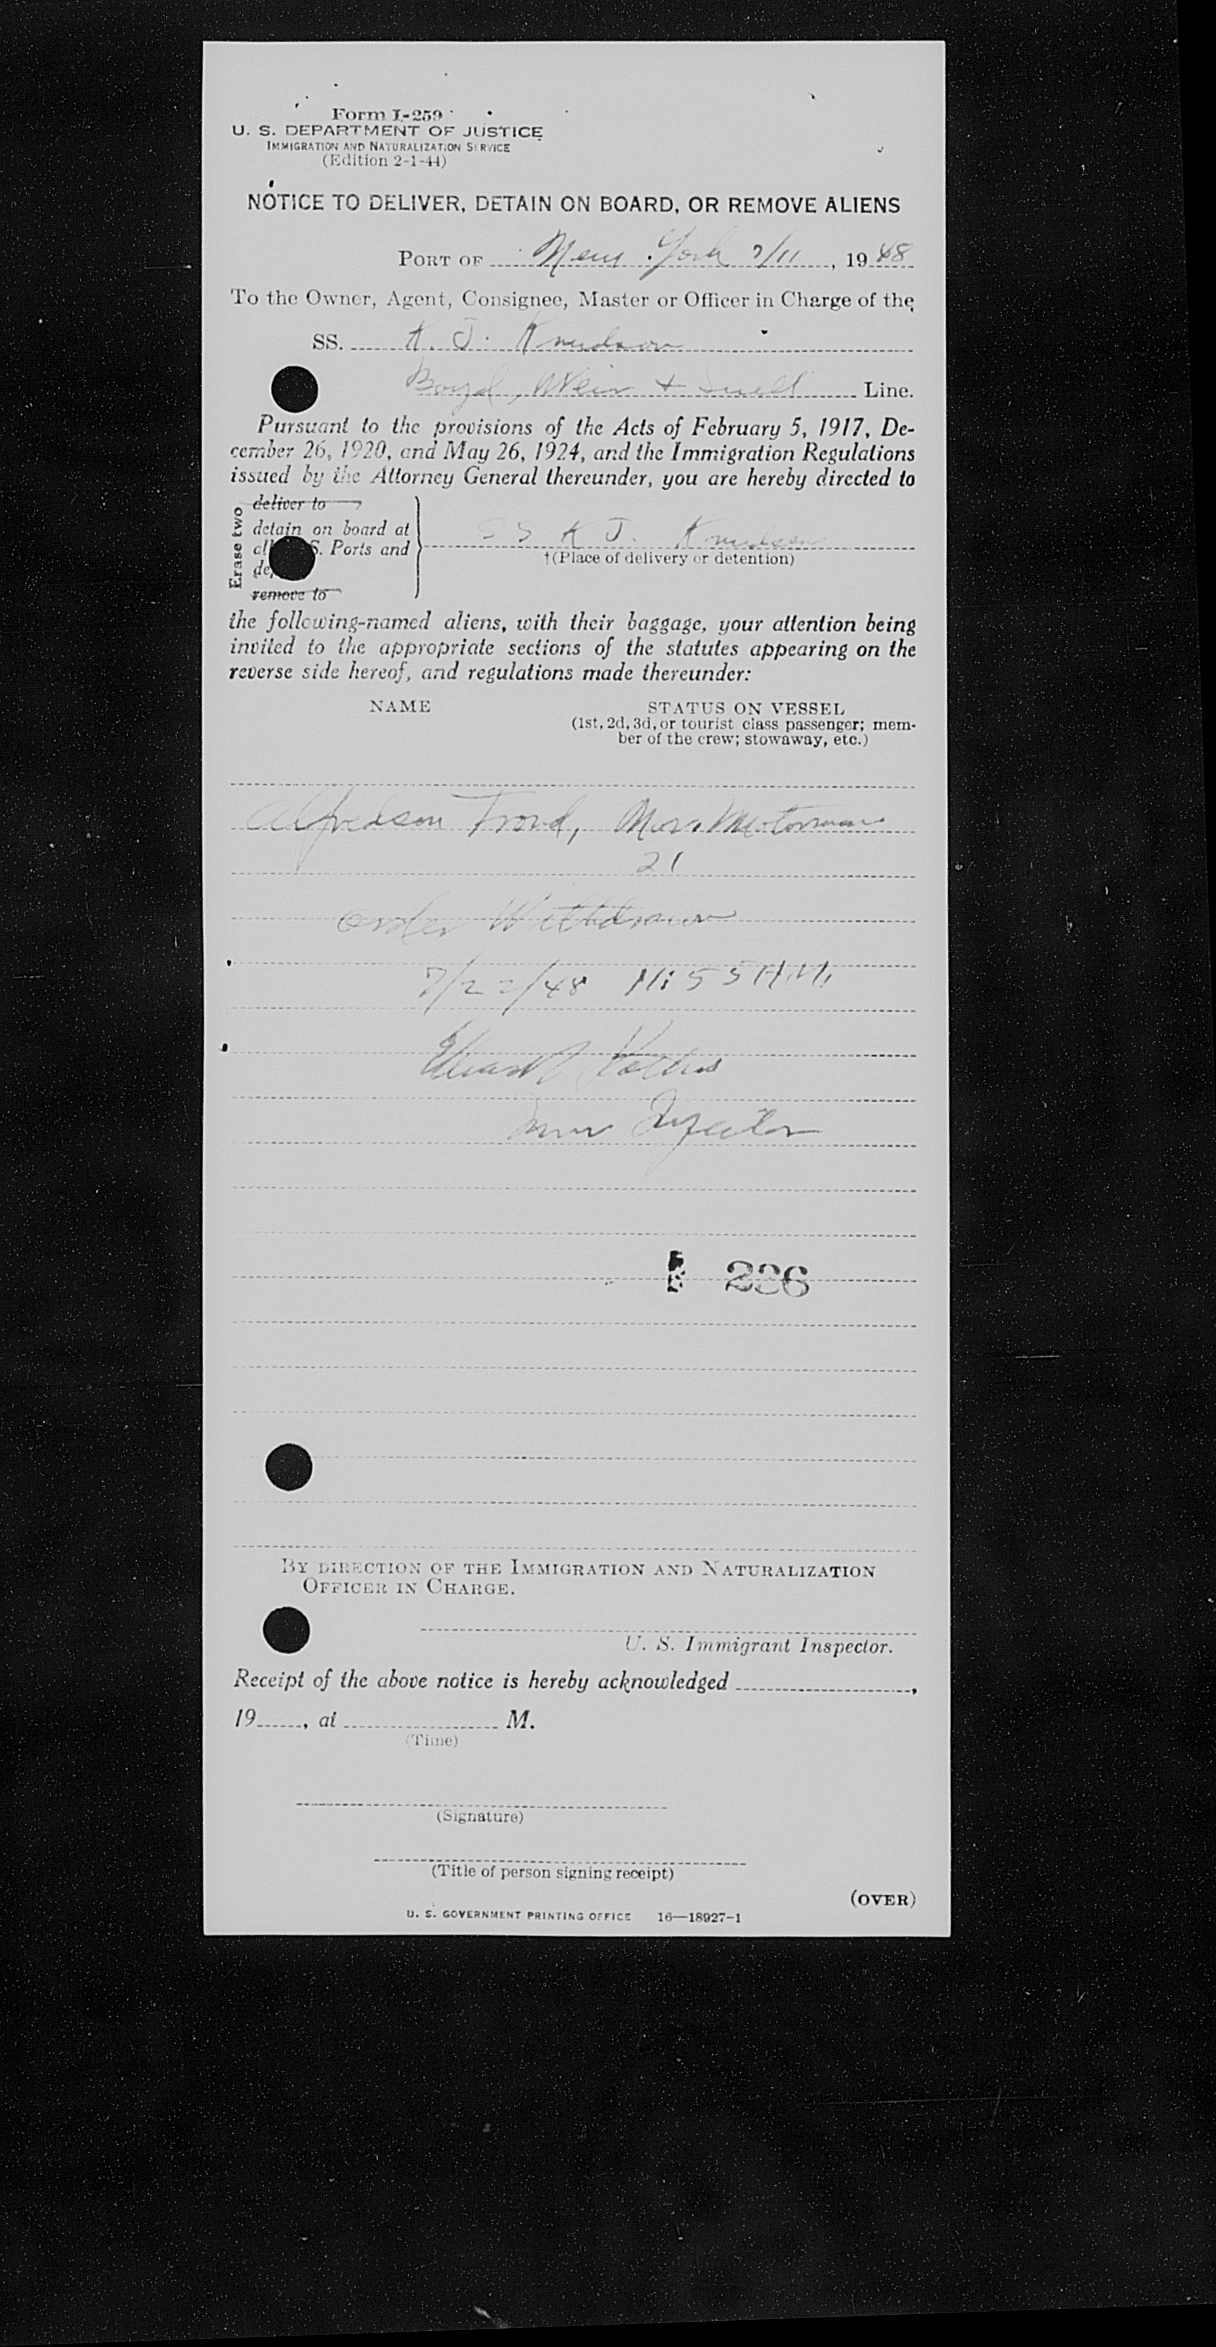 Form I-259
U. S. DEPARTMENT OF JUSTICE
IMMIGRATION AND NATURALIZATION SERVICE
(Edition 2-1-44)
NOTICE TO DELIVER, DETAIN ON BOARD, OR REMOVE ALIENS
PORT OF New York 7/11, 1948
To the Owner, Agent, Consignee, Master or Officer in Charge of the
SS. K. J. Knudson
Boyd, Weir & Sewell Line.
Pursuant to the provisions of the Acts of February 5, 1917, De-
cember 26, 1920, and May 26, 1924, and the Immigration Regulations
issued by the Attorney General thereunder, you are hereby directed to
Erase two
deliver to
detain on board at
all S. Ports and
de
remove to
SS K J. Knudsen
†(Place of delivery or detention)
the following-named aliens, with their baggage, your attention being
invited to the appropriate sections of the statutes appearing on the
reverse side hereof, and regulations made thereunder:
NAME
STATUS ON VESSEL
(1st, 2d, 3d, or tourist class passenger; mem-
ber of the crew; stowaway, etc.)
Alfredson Trond, Motorman
21
order Withdrawn
7/22/48 11:55 A.M.
Inspector
236
BY DIRECTION OF THE IMMIGRATION AND NATURALIZATION
OFFICER IN CHARGE.
U. S. Immigrant Inspector.
Receipt of the above notice is hereby acknowledged ,
19 , at M.
(Time)
(Signature)
(Title of person signing receipt)
(OVER)
U. S. GOVERNMENT PRINTING OFFICE 16—18927-1